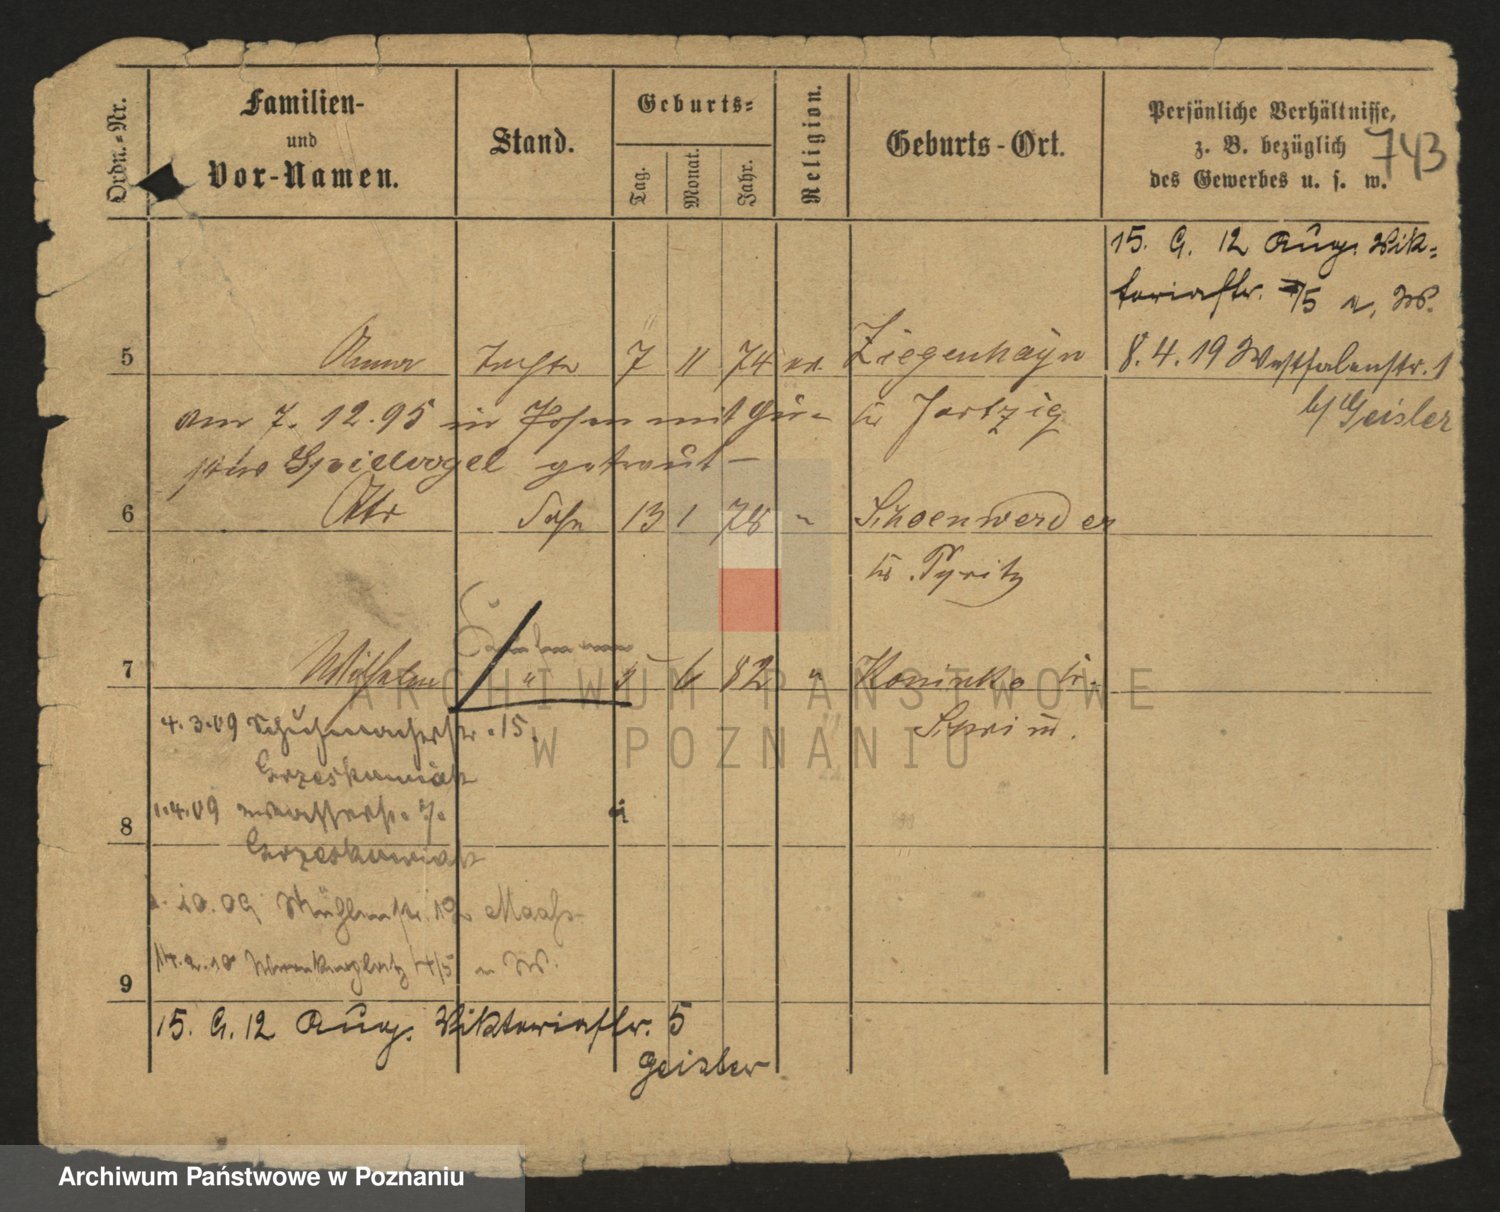 Ordn.-Nr.
Familien-
und
Vor-Namen.
Stand.
Geburts-
Tag.
Monat.
Jahr.
Religion.
Geburts-Ort.
Persönliche Verhältnisse,
z. B. bezüglich
des Gewerbes u. s. w.
743
15. G. 12 Aug. Vik-
toriastr. 5 a. W.
5 Anna Tochter 7 11 74 ev. Ziegenhayn 8.4.19 Westfalenstr. 1
b/ Geisler
am 7. 12. 95 in Posen mit Gu-
Kr
stav Spielvogel getraut –
6 Otto Sohn 13 1 78 " Schoenwerder
Kr. Pyritz
7 Wilhelm " 5 6 82 " Koninko Kr.
Schrimm.
4.3.09 Schuhmacherstr. 15.
Grzeskowiak
8
1.4.09
Grzeskowiak
10.09 Mühlenstr. 19 Maass
9
14.2.10 4/5 W.
15. G. 12 Aug. Viktoriastr. 5
Geisler
ARCHIWUM PAŃSTWOWE
W POZNANIU
Archiwum Państwowe w Poznaniu